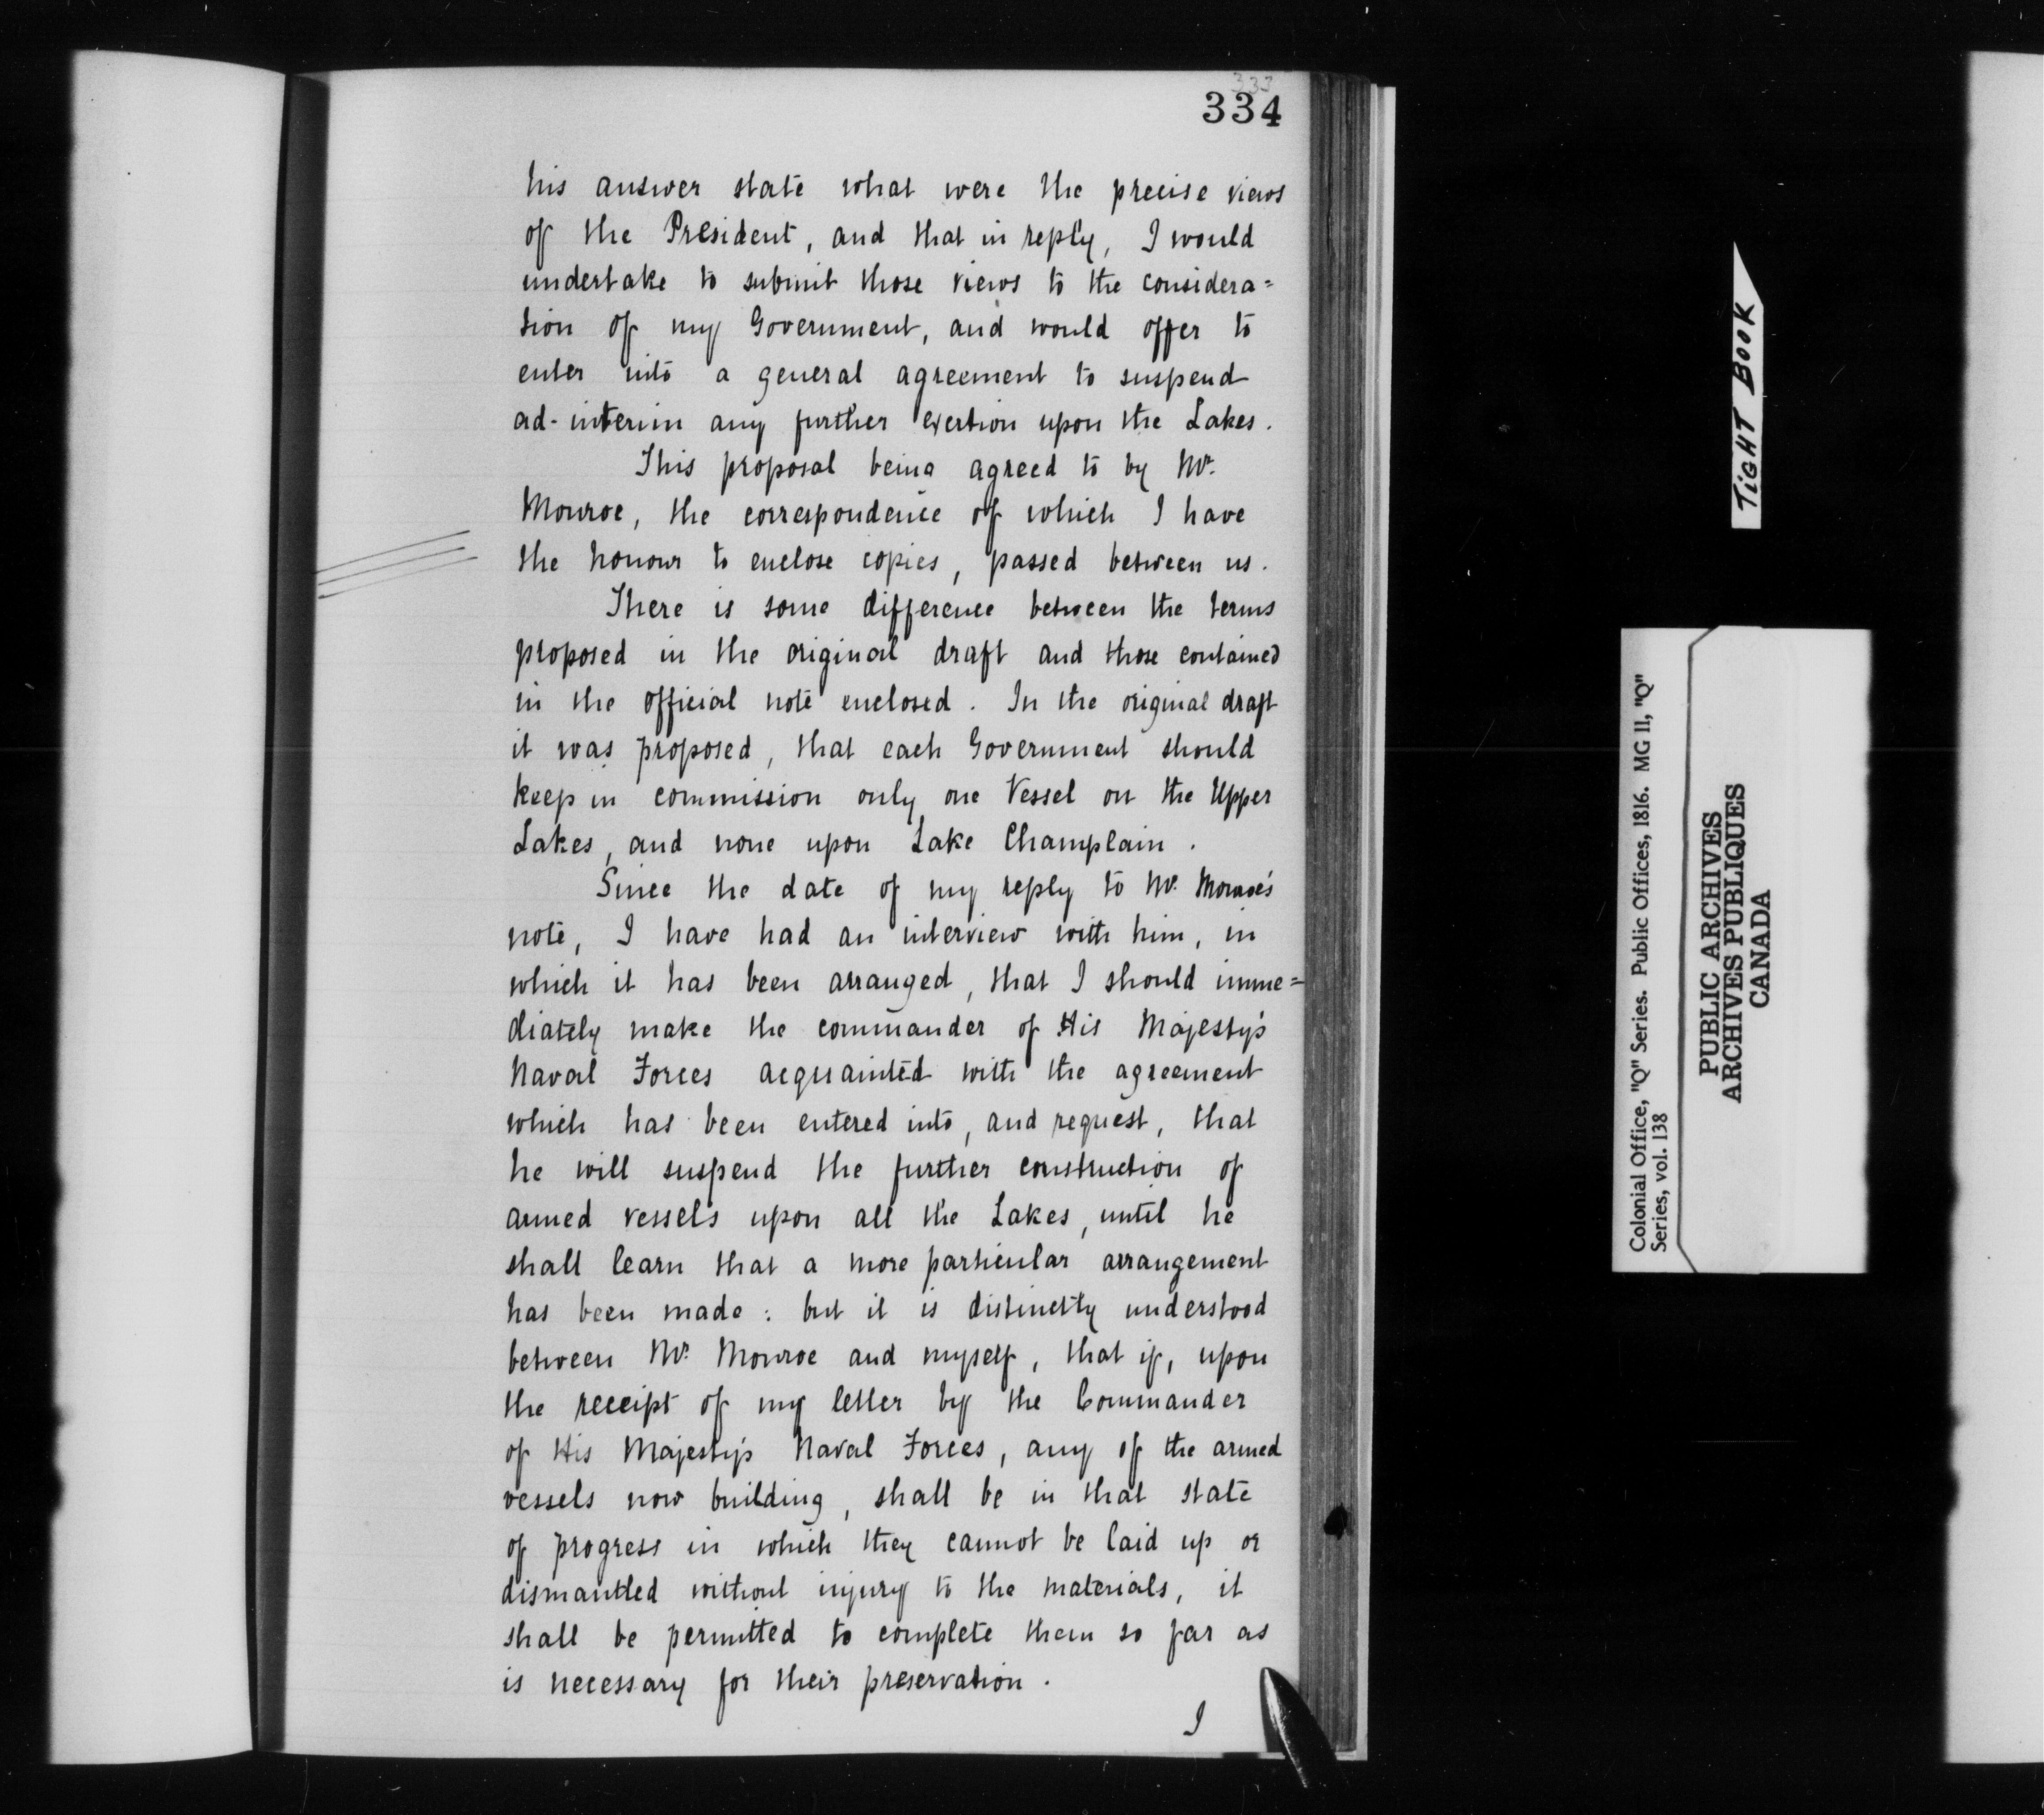 333
334
his answer state what were the precise views
of the President, and that in reply, I would
undertake to submit those views to the considera=
tion of my Government, and would offer to
enter into a general agreement to suspend
ad-interim any further exertion upon the Lakes.
This proposal being agreed to by Mr.
Monroe, the correspondence of which I have
the honour to enclose copies, passed between us.
There is some difference between the terms
proposed in the original draft and those contained
in the official note enclosed. In the original draft
it was proposed, that each Government should
keep in commission only one Vessel on the Upper
Lakes, and none upon Lake Champlain.
Since the date of my reply to Mr. Monroe's
note, I have had an interview with him, in
which it has been arranged, that I should imme=
diately make the commander of His Majesty's
Naval Forces acquainted with the agreement
which has been entered into, and request, that
he will suspend the further construction of
armed vessels upon all the Lakes, until he
shall learn that a more particular arrangement
has been made: but it is distinctly understood
between Mr. Monroe and myself, that if, upon
the receipt of my letter by the Commander
of His Majesty's Naval Forces, any of the armed
vessels now building, shall be in that state
of progress in which they cannot be laid up or
dismantled without injury to the materials, it
shall be permitted to complete them so far as
is necessary for their preservation.
I
TIGHT BOOK
Colonial Office, "Q" Series. Public Offices, 1816. MG 11, "Q"
Series, vol. 138
PUBLIC ARCHIVES
ARCHIVES PUBLIQUES
CANADA